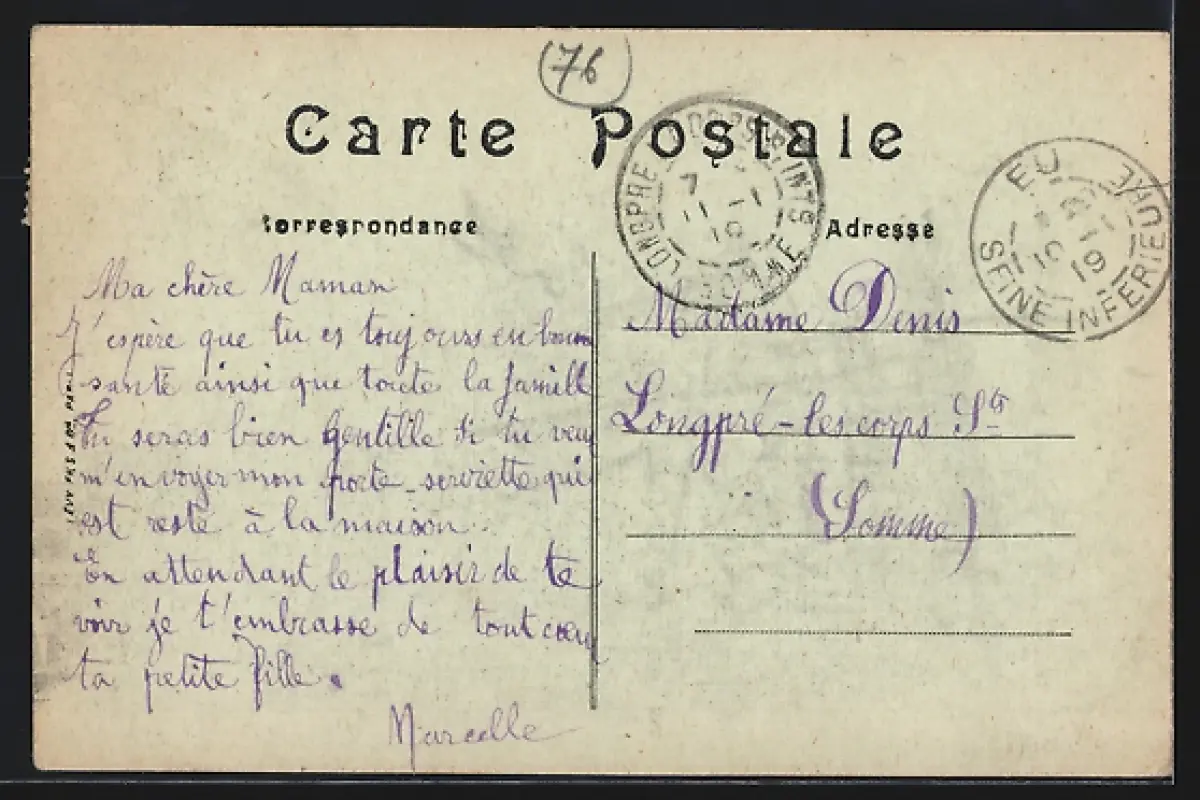 76
Carte Postale
Correspondance
Adresse
LONGPRE CORPS SAINTS
7
11 -1
10
SOMME
EU
10
19
SEINE INFERIEURE
Ma chère Maman
J'espère que tu es toujours en bonne
santé ainsi que toute la famille
Tu seras bien gentille si tu veux
m'envoyer mon porte-serviette qui
est resté à la maison.
En attendant le plaisir de te
voir je t'embrasse de tout cœur
ta petite fille.
Marcelle
Madame Denis
Longpré-les corps Sts
(Somme)